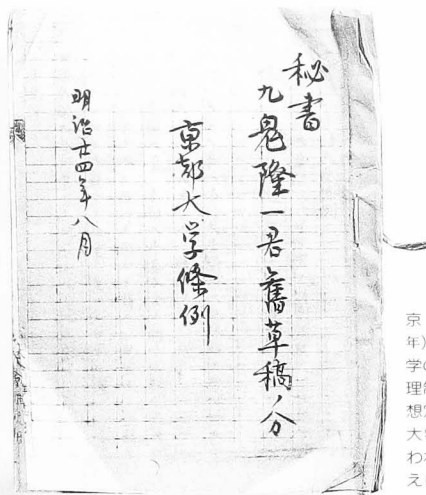 秘書
九鬼隆一君舊草稿ノ分
京都大学條例
明治廿四年八月
京
年)
学の
理
想
大
わ
え